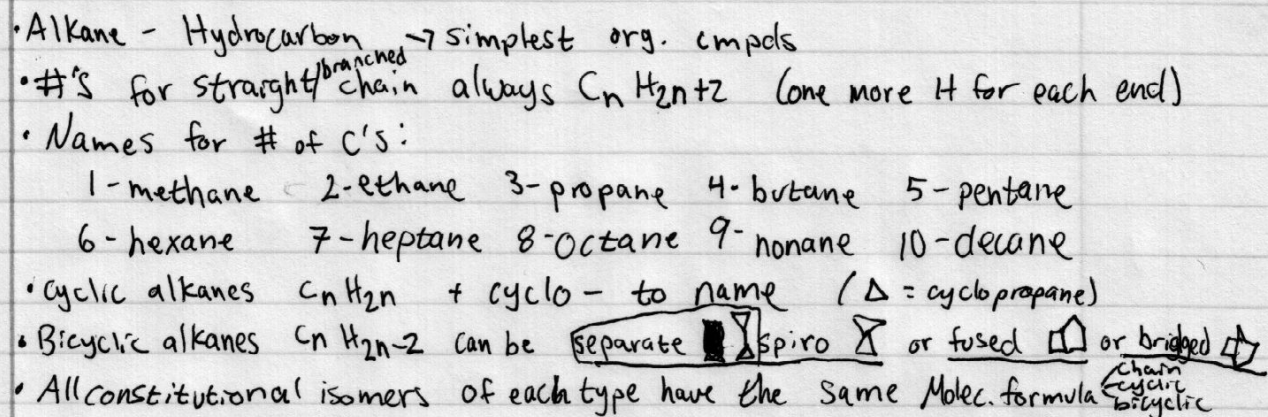 • Alkane - Hydrocarbon → simplest org. cmpds
• #'s for straight/branched chain always CnH2n+2 (one more H for each end)
• Names for # of C's:
1-methane 2-ethane 3-propane 4-butane 5-pentane
6-hexane 7-heptane 8-octane 9-nonane 10-decane
• cyclic alkanes CnH2n + cyclo- to name (Δ = cyclopropane)
• Bicyclic alkanes CnH2n-2 can be separate spiro or fused or bridged
• All constitutional isomers of each type have the same Molec. formula chain
cyclic
bicyclic